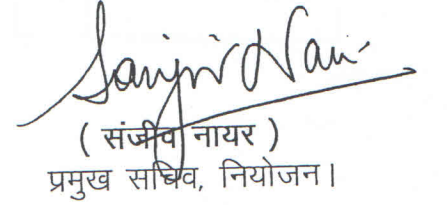 Sanjiv Nair
( संजीव नायर )
प्रमुख सचिव, नियोजन।